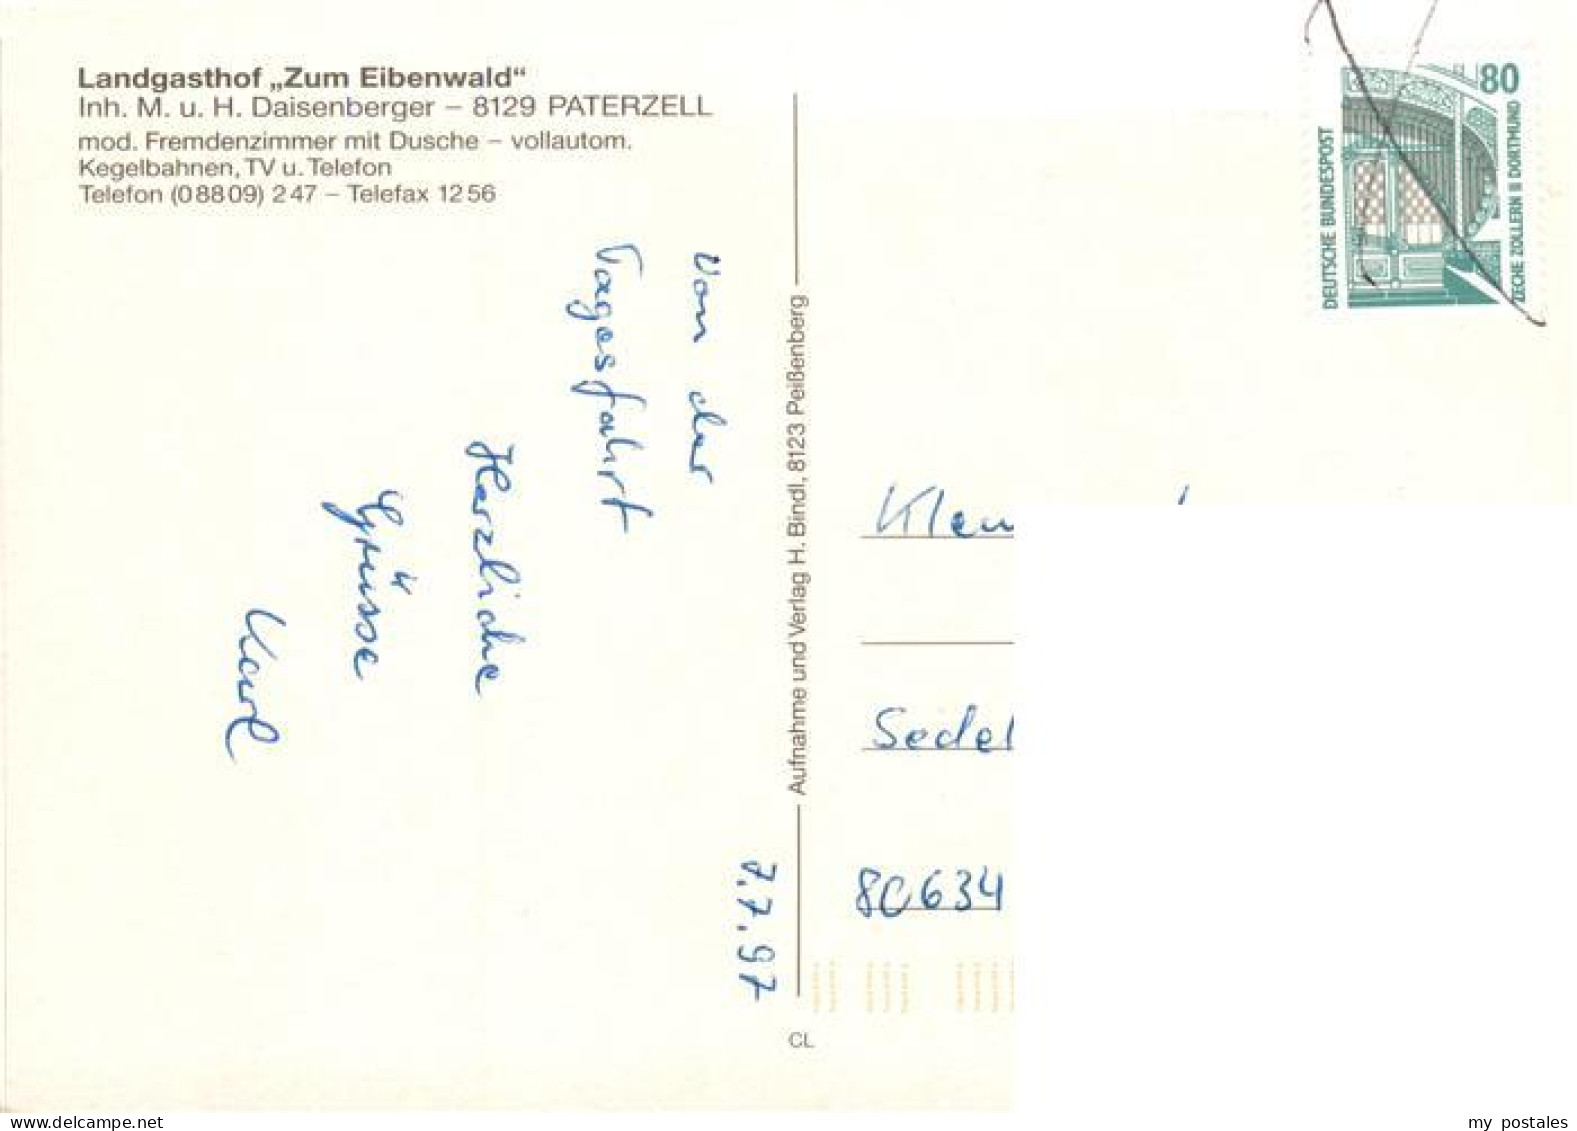 Landgasthof „Zum Eibenwald“
Inh. M. u. H. Daisenberger – 8129 PATERZELL
mod. Fremdenzimmer mit Dusche – vollautom.
Kegelbahnen, TV u. Telefon
Telefon (08809) 247 – Telefax 1256
Von der
Tagesfahrt
Herzliche
Grüsse
Karl
7.7.97
Aufnahme und Verlag H. Bindl, 8123 Peißenberg
CL
80
DEUTSCHE BUNDESPOST
ZECHE ZOLLERN II DORTMUND
Klem
Sedel
80634
delcampe.net
my postales